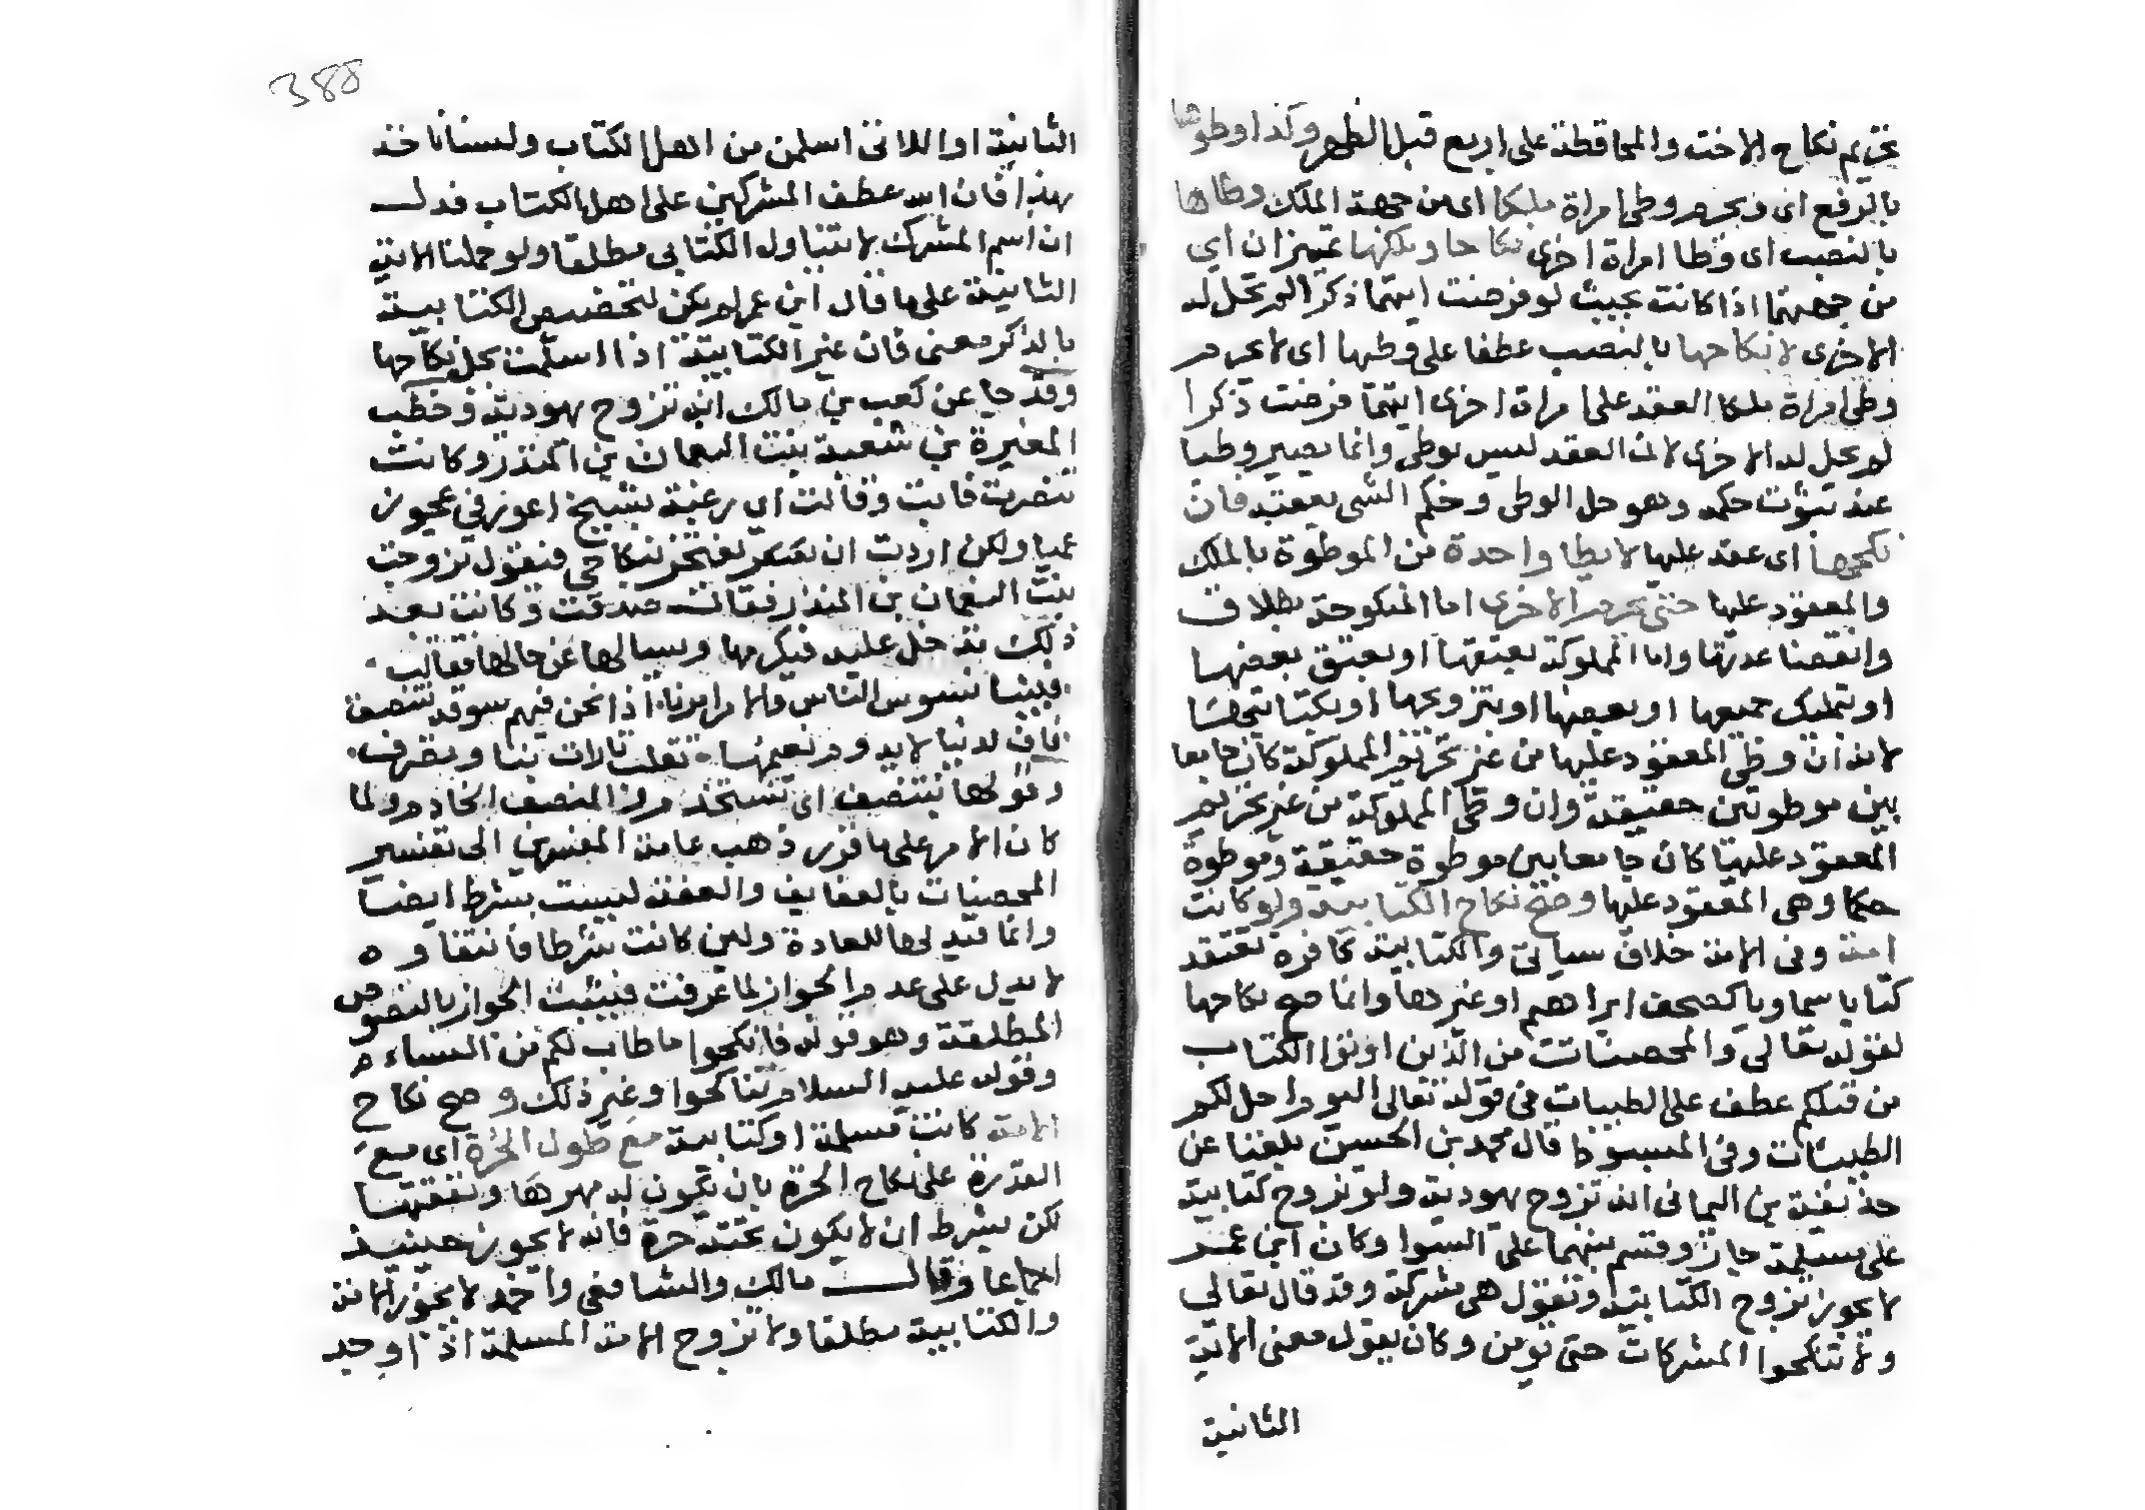 تحريم نكاح الاخت والمحافظة على اربع قبل الطهر وكذا وطؤها
بالرفع اي ويحرم وطي امراة ملكا اي من جهة الملك وطاها
بالنصب اي وطا امراة اخرى نكاحا وملكها تميزان اي
من جهتهما اذا كانت بحيث لو فرضت ايتهما ذكرا لم تحل له
الاخرى لا نكاحها بالنصب عطفا على وطيها اي لا يحرم
وطي امراة ملكا العقد على امراة اخرى ايتهما فرضت ذكرا
لم يحل له الاخرى لان العقد ليس بوطي وانما يصير وطيا
عند ثبوت حكمه وهو حل الوطي وحكم الشي يعقبه فان
نكحها اي عقد عليها لا يطا واحدة من الموطوة بالملك
والمعقود عليها حتى تحرم الاخرى اما المنكوحة بطلاق
وانقضا عدتها واما المملوكة بعتقها او بعتق بعضها
او بتمليك جميعها او بعضها او بتزويجها او بكتابتها
لانه ان وطي المعقود عليها من غير تحريم المملوكة كان جامعا
بين موطوتين حقيقة وان وطي المملوكة من غير تحريم
المعقود عليها كان جامعا بين موطوة حقيقة وموطوة
حكما وهي المعقود عليها وصح نكاح الكتابية ولو كانت
امة وفي الامة خلاف سياتي والكتابية كافرة تعتقد
كتابا سماويا كصحف ابراهيم او غيرها وانما صح نكاحها
لقوله تعالى والمحصنات من الذين اوتوا الكتاب
من قبلكم عطف على الطيبات في قوله تعالى اليوم احل لكم
الطيبات وفي المبسوط قال محمد بن الحسن بلغنا عن
حذيفة بن اليماني انه تزوج يهودية ولو تزوج كتابية
على مسلمة جاز وقسم بينهما على السوا وكان ابن عمر
لا يجوز تزوج الكتابية ويقول هي مشركة وقد قال تعالى
ولا تنكحوا المشركات حتى يومن وكان يقول معنى الاية
الثانية
388
الثانية او اللاتي اسلمن من اهل الكتاب ولسنا ناخذ
بهذا فان الله عطف المشركين على اهل الكتاب فدل
ان اسم المشرك لا يتناول الكتابي مطلقا ولو حملنا الاية
الثانية على ما قال ابن عمر لم يكن لتخصيص الكتابية
بالذكر معنى فان غير الكتابية اذا اسلمت يحل نكاحها
وقد جا عن كعب بن مالك انه تزوج يهودية وخطب
المغيرة بن شعبة بنت النعمان بن المنذر وكانت
تنصرت فابت وقالت اي رغبة لشيخ اعور في عجوز
عميا ولكن اردت ان تفتخر بنكاحي فتقول تزوجت
بنت النعمان بن المنذر فقال صدقت وكانت بعد
ذلك تدخل عليه فيكرمها ويسالها عن حالها فقالت
فبينا نسوس الناس والامر امرنا اذا نحن فيهم سوقة نتنصف
فاف لدنيا لا يدوم نعيمها تقلب تارات بنا وتصرف
وقولها نتنصف اي نستخدم والمنصف الخادم ولما
كان الامر على ما قرر ذهب عامة المفسرين الى تفسير
المحصنات بالعفايف والعفة ليست بشرط ايضا
وانما قيد بها للعادة ولين كانت شرطا فانتفاوه
لا يدل على عدم الجواز لما عرفت فيثبت الجواز بالنصوص
المطلقة وهو قوله فانكحوا ما طاب لكم من النساء
وقوله عليه السلام تناكحوا وغير ذلك وصح نكاح
الامة كانت مسلمة او كتابية مع طول الحرة اي مع
القدرة على نكاح الحرة بان تكون له مهرها ونفقتها
لكن بشرط ان لا يكون تحته حرة فانه لا يجوز حينيذ
اجماعا وقال مالك والشافعي واحمد لا يجوز الامة
والكتابية مطلقا ولا تزوج الامة المسلمة اذا وجد